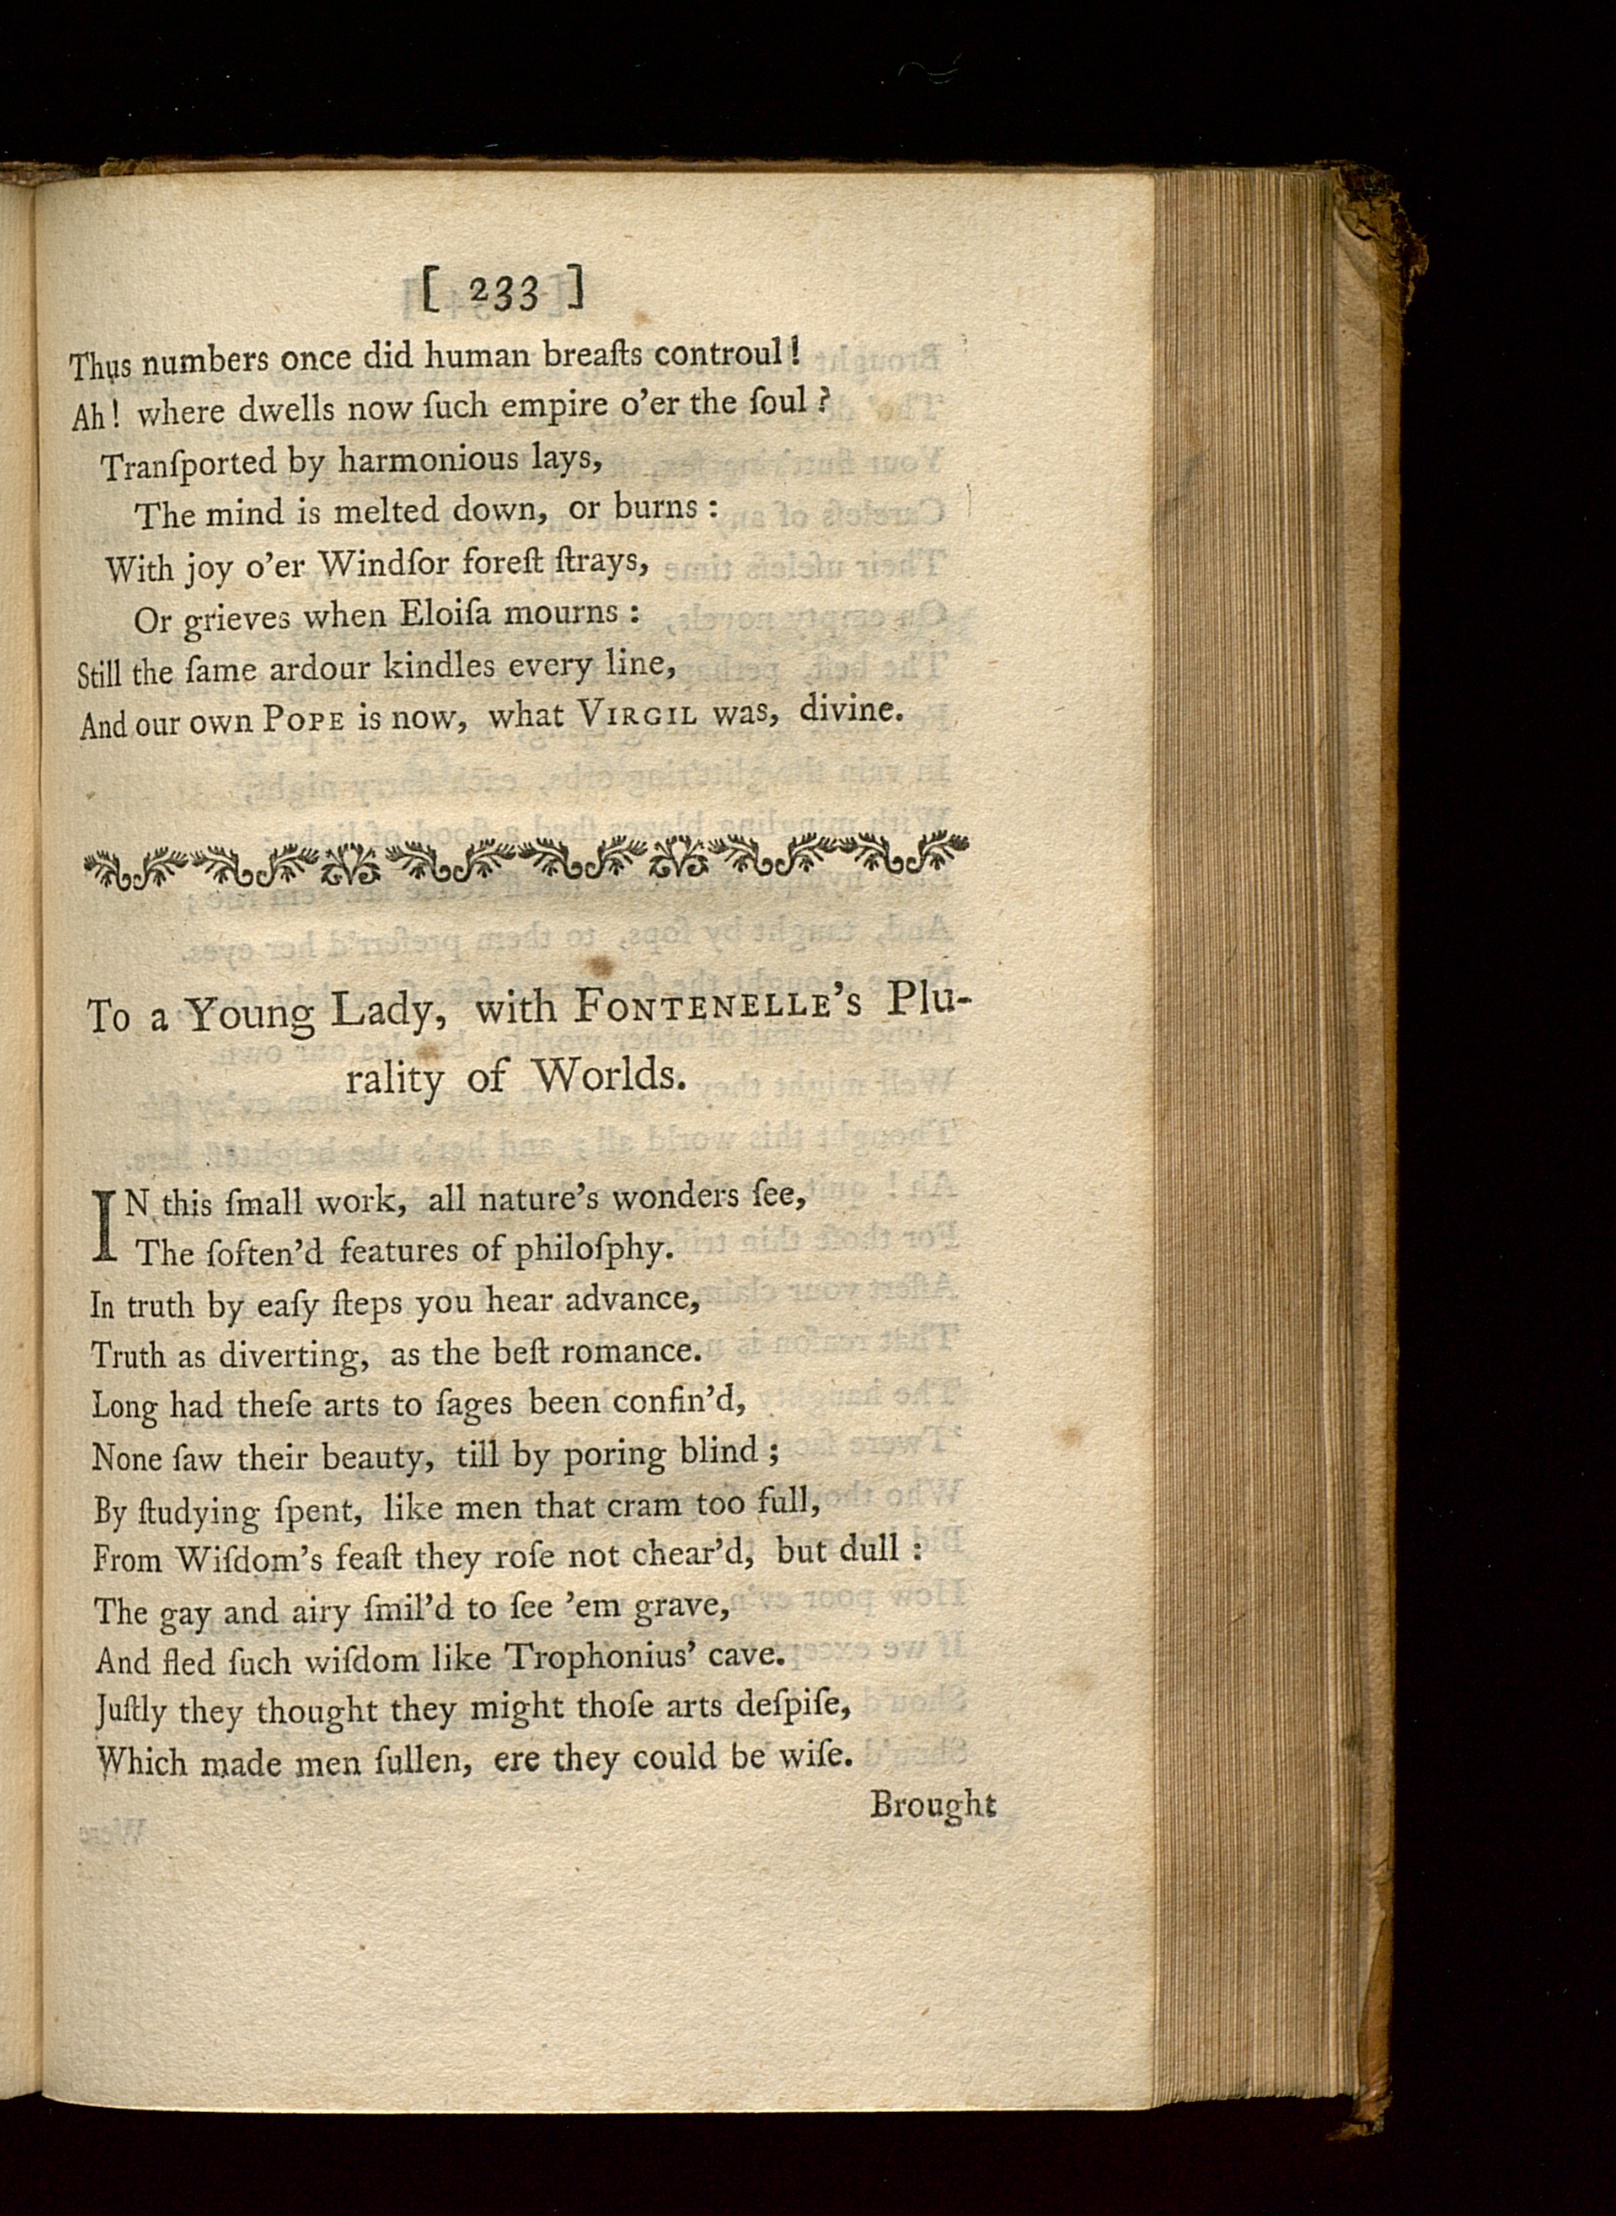 [ 233 ]
Thus numbers once did human breaſts controul!
Ah! where dwells now ſuch empire o'er the ſoul?
Tranſported by harmonious lays,
The mind is melted down, or burns:
With joy o'er Windſor foreſt ſtrays,
Or grieves when Eloiſa mourns:
Still the ſame ardour kindles every line,
And our own POPE is now, what VIRGIL was, divine.
To a Young Lady, with FONTENELLE's Plu-
rality of Worlds.
IN this ſmall work, all nature's wonders ſee,
The ſoften'd features of philoſphy.
In truth by eaſy ſteps you hear advance,
Truth as diverting, as the beſt romance.
Long had theſe arts to ſages been confin'd,
None ſaw their beauty, till by poring blind;
By ſtudying ſpent, like men that cram too full,
From Wiſdom's feaſt they roſe not chear'd, but dull:
The gay and airy ſmil'd to ſee 'em grave,
And fled ſuch wiſdom like Trophonius' cave.
Juſtly they thought they might thoſe arts deſpiſe,
Which made men ſullen, ere they could be wiſe.
Brought